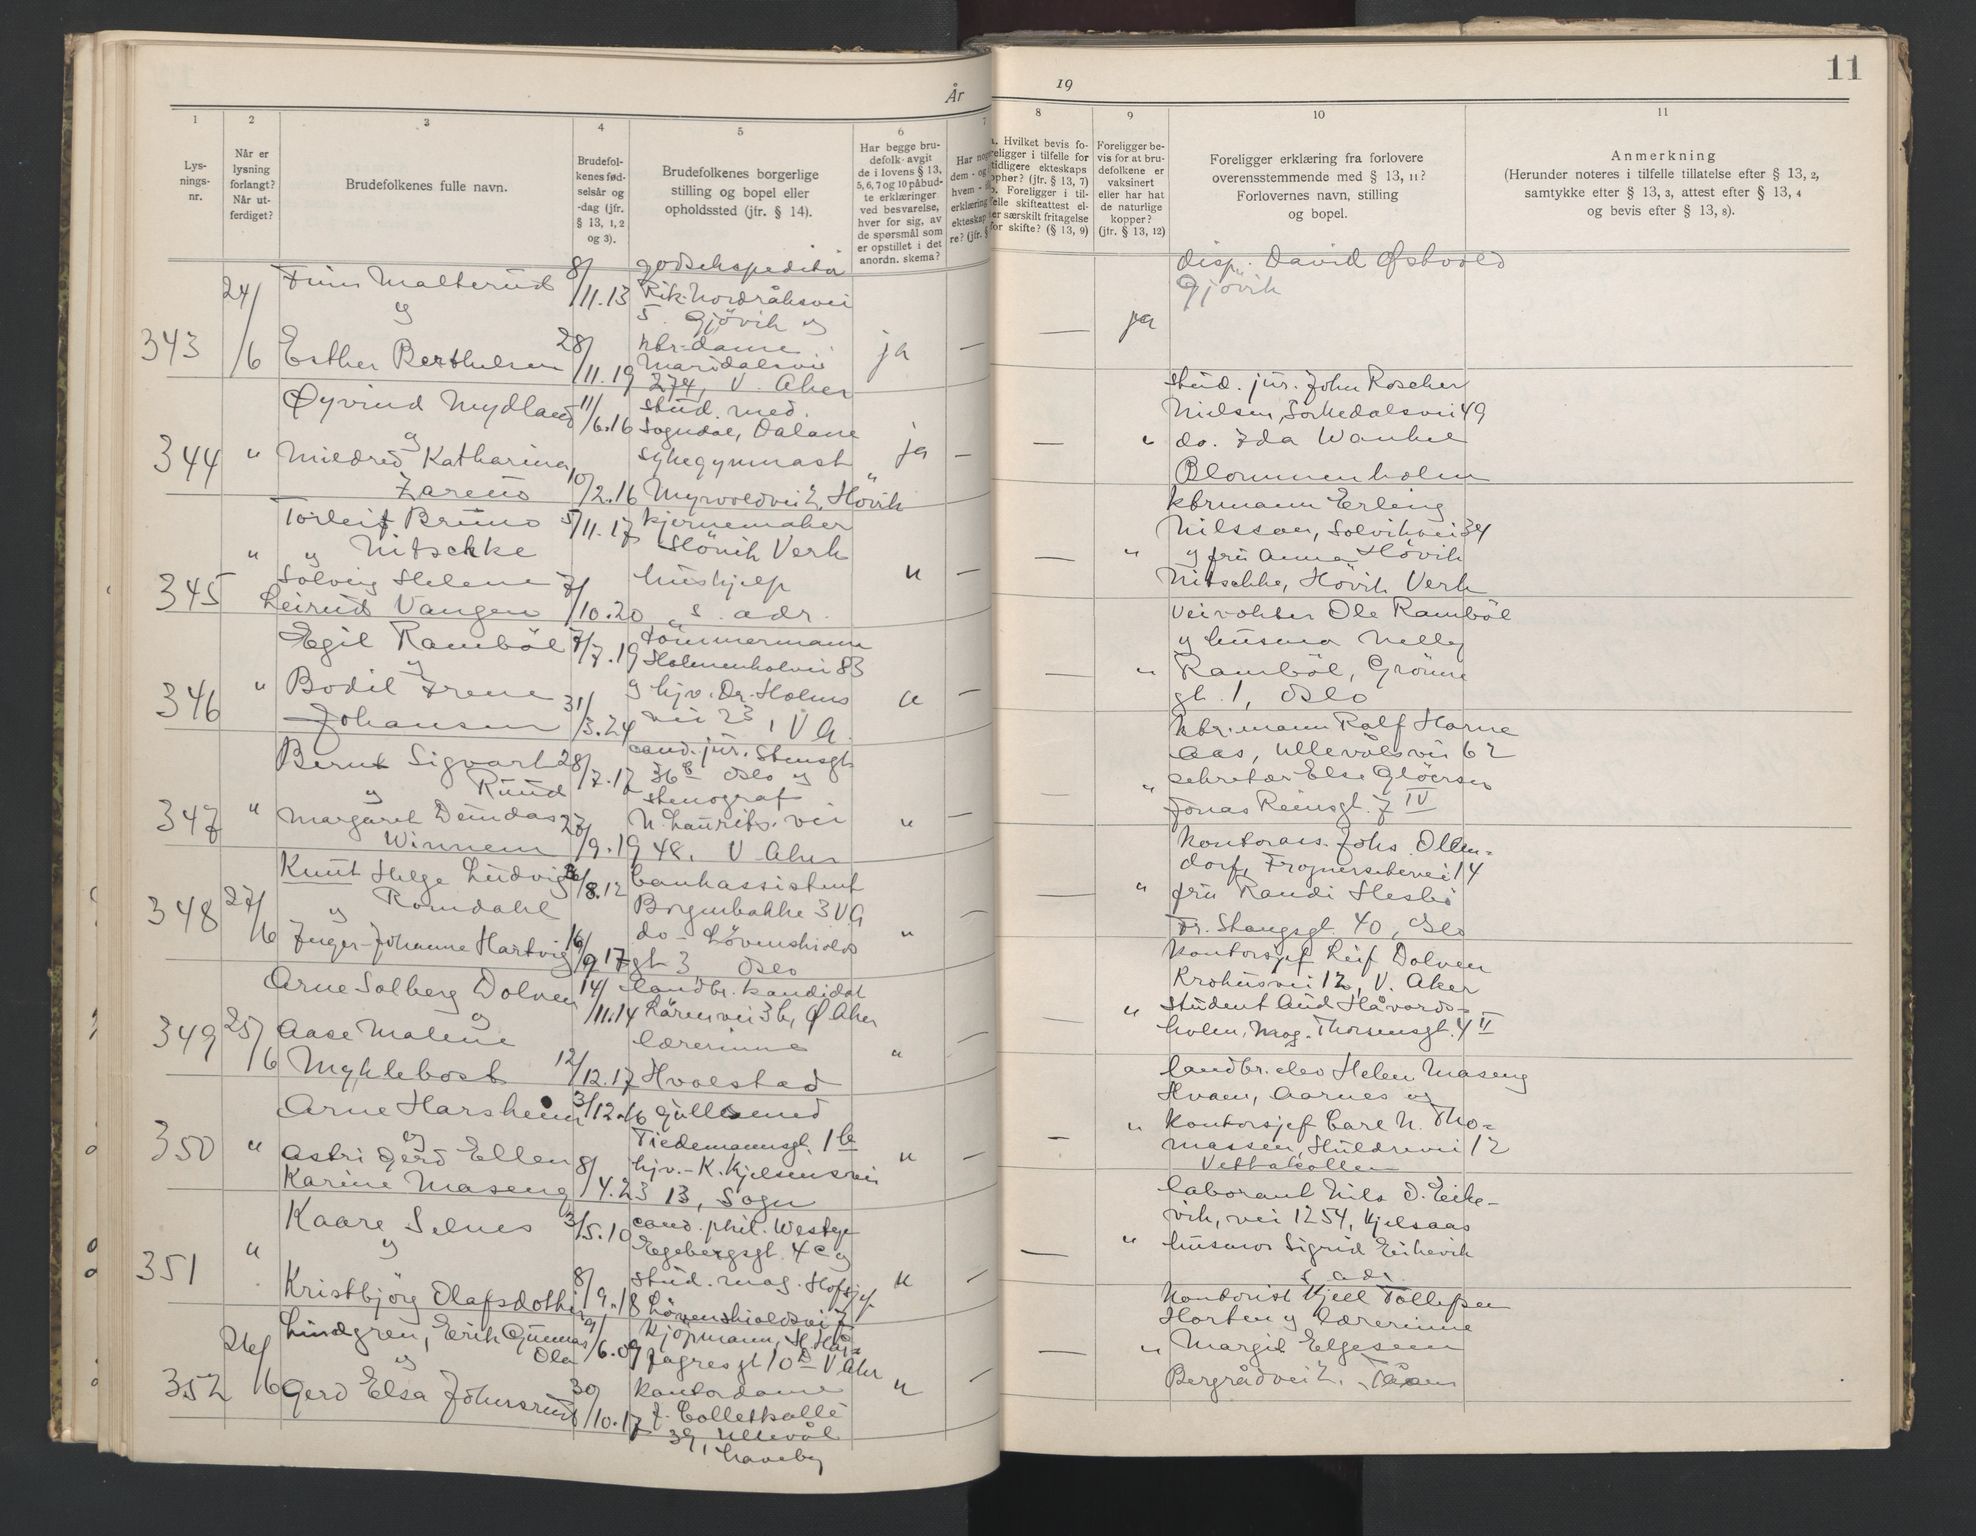 År
19
11
1
2
3
4
5
6
7
8
9
10
11
Lys-
nings-
nr.
Når er
lysning
forlangt?
Når ut-
ferdiget?
Brudefolkenes fulle navn.
Brudefol-
kenes fød-
selsår og
-dag (jfr.
§ 13, 1, 2
og 3).
Brudefolkenes borgerlige
stilling og bopel eller
opholdssted (jfr. § 14).
Har begge bru-
defolk avgit
de i lovens § 13,
5, 6, 7 og 10 påbud-
te erklæringer
ved besvarelse,
hver for sig, av
de spørsmål som
er opstillet i det
anordn. skema?
Har nog
dem - og
hvem -
erklæring
ekteskap
re? (jfr. §
Hvilket bevis fo-
religger i tilfelle for
tidligere ekteskaps
ophør? (jfr. § 13, 7)
Foreligger i til-
felle skifteattest el-
ler særskilt fritagelse
for skifte? (§ 13, 9)
Foreligger be-
vis for at bru-
defolkene er
vaksinert
eller har hat
de naturlige
kopper?
(jfr. § 13, 12)
Foreligger erklæring fra forlovere
overensstemmende med § 13, 11?
Forlovernes navn, stilling
og bopel.
Anmerkning
(Herunder noteres i tilfelle tillatelse efter § 13, 2,
samtykke efter § 13, 3, attest efter § 13, 4
og bevis efter § 13, 8).
343
24/6
Finn Malterud
8/11.13
godsekspeditør
Rik. Nordråksvei
5. Gjövik og
og
Esther Berthelsen
28/11.19
ktr-dame
Maridalsvei
274, V. Aker
ja
—
—
ja
disp. David Østvold
Gjövik
344
"
Øyvind Mydland
11/6.16
stud. med.
Sogndal, Dalane
og
Mildred Katharina
10/2.16
sykegymnast
Myrvoldvei 2, Hövik
ja
—
—
"
stud. jur. John Roscher
Nielsen, Sörkedalsvei 49
do. Ida Wankel
Blommenholm
345
"
Torleif Bruno
5/11.17
kjernemaker
og Nitschke
Hövik Verk
Solveig Helene
7/10.20
hushjelp
Leirud Vangen
s. adr.
"
—
—
"
ktrmann Erling
Nilsson, Solvikvei 34
og fru Anna Hövik
Nitschke, Hövik Verk
346
"
Egil Ramböl
7/7.19
tömmermann
Holmenkolvei 83
og
Bodil Irene
31/3.24
og hjv. Dr. Holms
Johansen
vei 23, V A.
"
—
—
"
Veivokter Ole Ramböl
og husmor Nelly
Ramböl, Grönne
gt. 1, Oslo
347
"
Bernt Sigvart
28/7.17
cand. jur. Stensgt.
Ruud
36 B Oslo og
og
stenograf
Margaret Dundas
27/9.19
N. Laurits. vei
Winnem
48, V Aker
"
—
—
"
ktr.mann Ralf Harne
Aas, Ullevålsvei 62
sekretær Else Glöersen
Jonas Reinsgt. 7 IV
348
27/6
Knut Helge Ludvig
26/8.12
bankassistent
Romdahl
Borgenbakke 3 V A
og
do - Lövenskiolds
Inger-Johanne Hartvig
16/9 17
gt 3 Oslo
"
—
—
"
Kontorass. Johs. Ollen-
dorf, Frognerseterveien 14
fru Randi Hesbö
Fr. Stangsgt. 40, Oslo
349
25/6
Arne Solberg Dolven
14/11.14
landbr. kandidat
Lörenvei 36, Ø Aker
og
Aase Malene
lærerinne
Myklebost
12/12.17
Hvalstad
"
—
—
"
Kontorsjef Leif Dolven
Krohusvei 12, V. Aker
student Aud Håvards-
holm, Mog. Thorsensgt. 4 II
350
"
Arne Harsheim
3/12.16
gullsmed
Tiedemannsgt. 1 b
og
Astri Gerd Ellen
8/4.23
hjv. - K. Kjelsensvei
Karine Maseng
13, Sogn
"
—
—
"
landbr. elev Helen Maseng
Hvam, Aarnes og
Kontorsjef Carl N. Tho-
massen, Huldrevei 12
Vettakollen
351
"
Kaare Selnes
3/5.10
cand. phil. Westye
og
Egebergsgt. 4 c og
Kristbjörg Olafsdottir
8/9.18
stud. mag. Hofsjef
Lövenskioldsvei 7
"
—
—
"
laborant Nils O. Eike-
vik, vei 1254, Kjelsaas
husmor Sigrid Eikevik
s adr.
352
26/6
Lindgren, Erik Gunnar
9/6.09
kjöpmann, H. Hår-
Ola
fagresgt 10 D V Aker
og
Gerd Elsa Johnsrud
30/10.17
kontordame
J. Colletsallé
39, Ullevål
haveby
"
—
—
"
Kontorist Kjell Tollefsen
Horten og lærerinne
Margit Elgesem
Bergrådvei 2, Tåsen